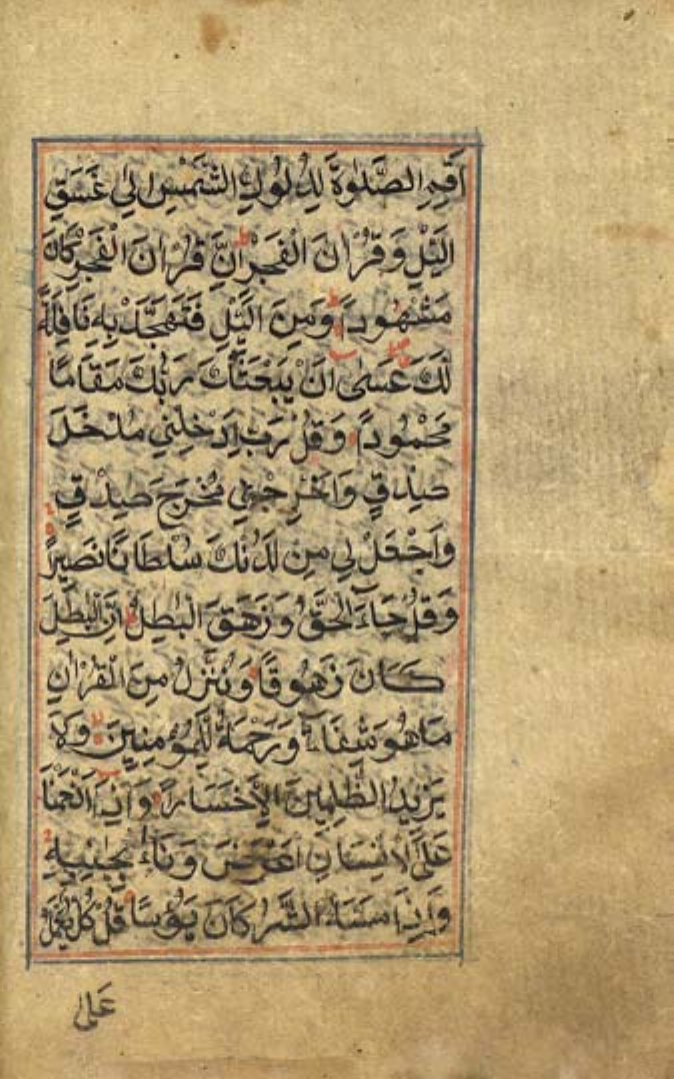 اَقِمِ الصَّلٰوةَ لِدُلُوكِ الشَّمْسِ اِلٰى غَسَقِ
الَّيْلِ وَقُرْاٰنَ الْفَجْرِ اِنَّ قُرْاٰنَ الْفَجْرِ كَانَ
مَشْهُودًا وَمِنَ الَّيْلِ فَتَهَجَّدْ بِهِ نَافِلَةً
لَكَ عَسٰى اَنْ يَبْعَثَكَ رَبُّكَ مَقَامًا
مَحْمُودًا وَقُلْ رَبِّ اَدْخِلْنِي مُدْخَلَ
صِدْقٍ وَاَخْرِجْنِي مُخْرَجَ صِدْقٍ
وَاجْعَلْ لِي مِنْ لَدُنْكَ سُلْطَانًا نَصِيرًا
وَقُلْ جَاءَ الْحَقُّ وَزَهَقَ الْبٰطِلُ اِنَّ الْبٰطِلَ
كَانَ زَهُوقًا وَنُنَزِّلُ مِنَ الْقُرْاٰنِ
مَا هُوَ شِفَاءٌ وَرَحْمَةٌ لِلْمُؤْمِنِينَ وَلَا
يَزِيدُ الظّٰلِمِينَ اِلَّا خَسَارًا وَاِذَا اَنْعَمْنَا
عَلَى الْاِنْسَانِ اَعْرَضَ وَنَاٰ بِجَانِبِهِ
وَاِذَا مَسَّهُ الشَّرُّ كَانَ يَؤُسًا قُلْ كُلٌّ يَعْمَلُ
عَلٰى